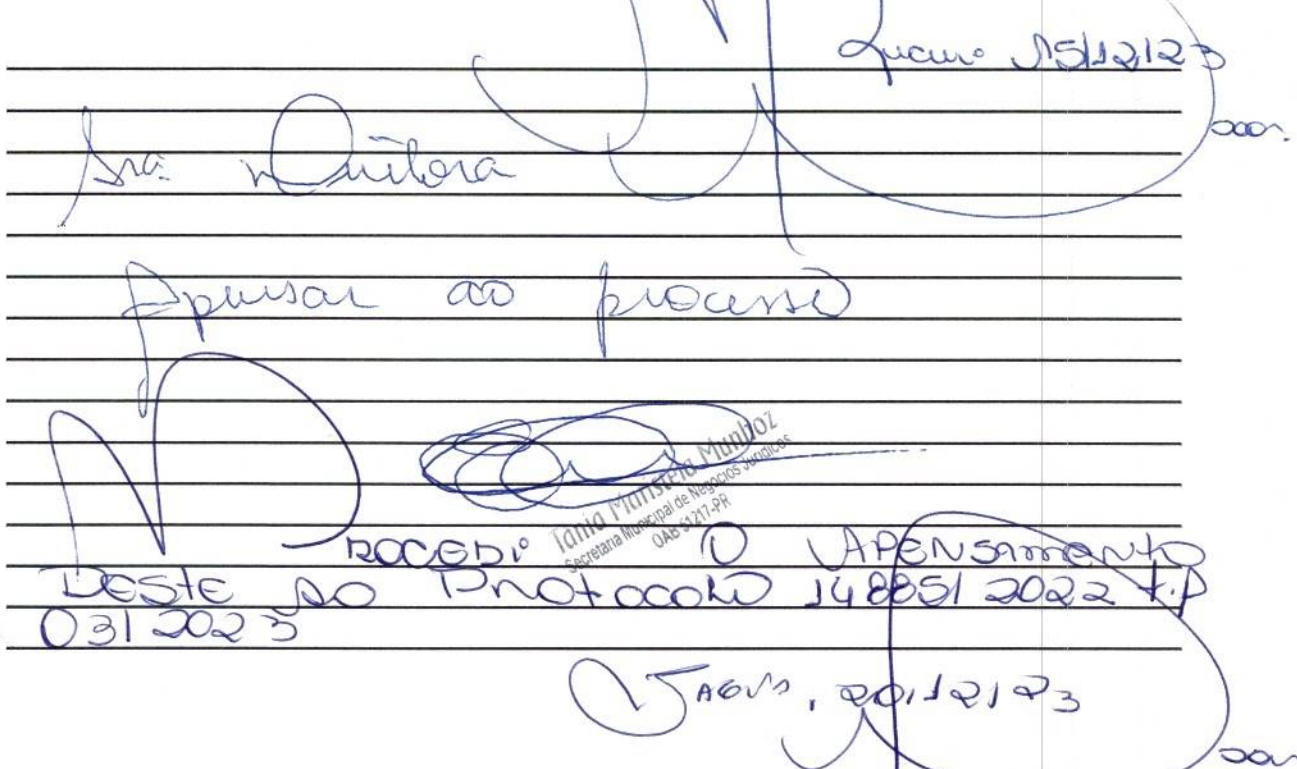 15/12/23
Sra Diretora
Apensar ao processo
Tania Maristela Munhoz
Secretaria Municipal de Negócios Jurídicos
OAB 51217-PR
PROCEDI O APENSAMENTO
DESTE AO PROTOCOLO 14885/2022 T.P
03/2023
20/12/23